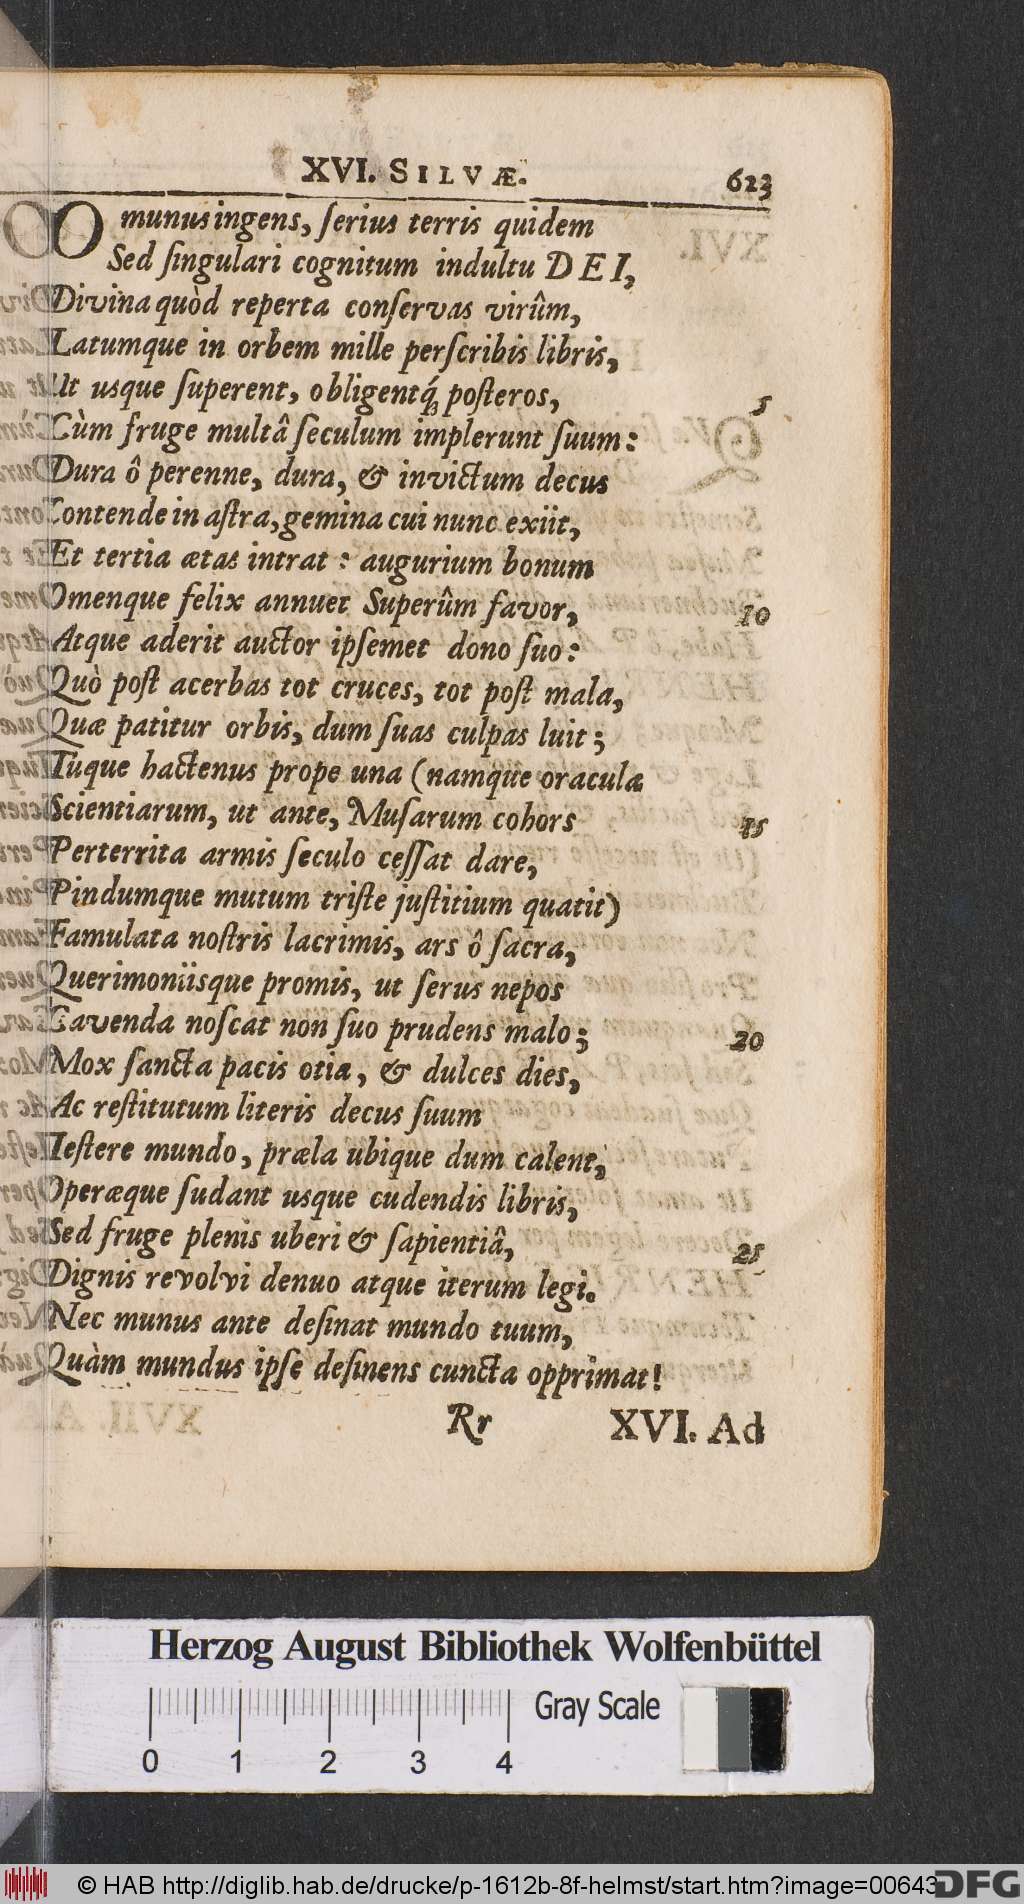 XVI. SILVÆ. 623
O munus ingens, ſerius terris quidem
Sed ſingulari cognitum indultu DEI,
Divina quòd reperta conſervas virûm,
Latumque in orbem mille perſcribis libris,
Ut usque ſuperent, obligentq́; poſteros, 5
Cùm fruge multâ ſeculum implerunt ſuum:
Dura ô perenne, dura, & invictum decus
Contende in aſtra, gemina cui nunc exiit,
Et tertia ætas intrat: augurium bonum
Omenque felix annuet Superûm favor, 10
Atque aderit auctor ipſemet dono ſuo:
Quò poſt acerbas tot cruces, tot poſt mala,
Quæ patitur orbis, dum ſuas culpas luit;
Tuque hactenus prope una (namque oracula
Scientiarum, ut ante, Muſarum cohors 15
Perterrita armis ſeculo ceſſat dare,
Pindumque mutum triſte juſtitium quatit)
Famulata noſtris lacrimis, ars ô ſacra,
Querimoniisque promis, ut ſerus nepos
Cavenda noſcat non ſuo prudens malo; 20
Mox ſancta pacis otia, & dulces dies,
Ac reſtitutum literis decus ſuum
Teſtere mundo, præla ubique dum calent,
Operæque ſudant usque cudendis libris,
Sed fruge plenis uberi & ſapientiâ, 25
Dignis revolvi denuo atque iterum legi.
Nec munus ante deſinat mundo tuum,
Quàm mundus ipſe deſinens cuncta opprimat!
Rr XVI. Ad
Herzog August Bibliothek Wolfenbüttel
Gray Scale
0 1 2 3 4
© HAB http://diglib.hab.de/drucke/p-1612b-8f-helmst/start.htm?image=00643
DFG